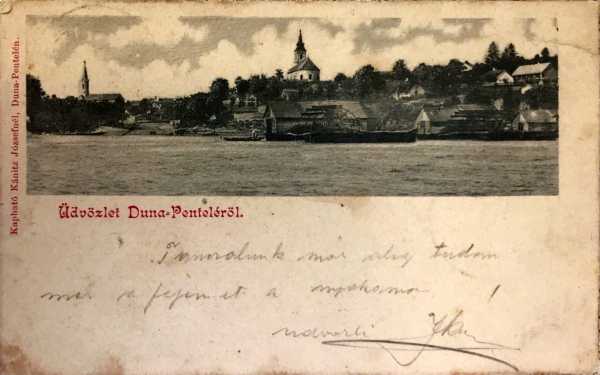 Kapható Kánitz Józsefnél, Duna-Pentelén.
Üdvözlet Duna-Penteléröl.
már alig tudom
a fejemet a nyakamon!
üdvözli